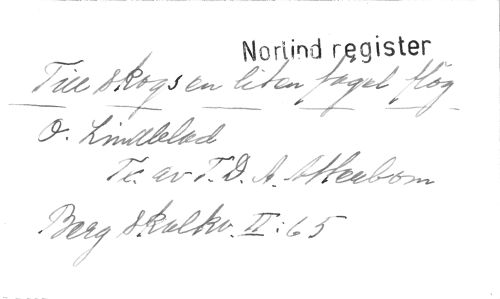 Norlind register
Till skogs en liten fågel flög
O. Lindblad
Te. av P.D. A. Atterbom
Berg Skolkv. II:65